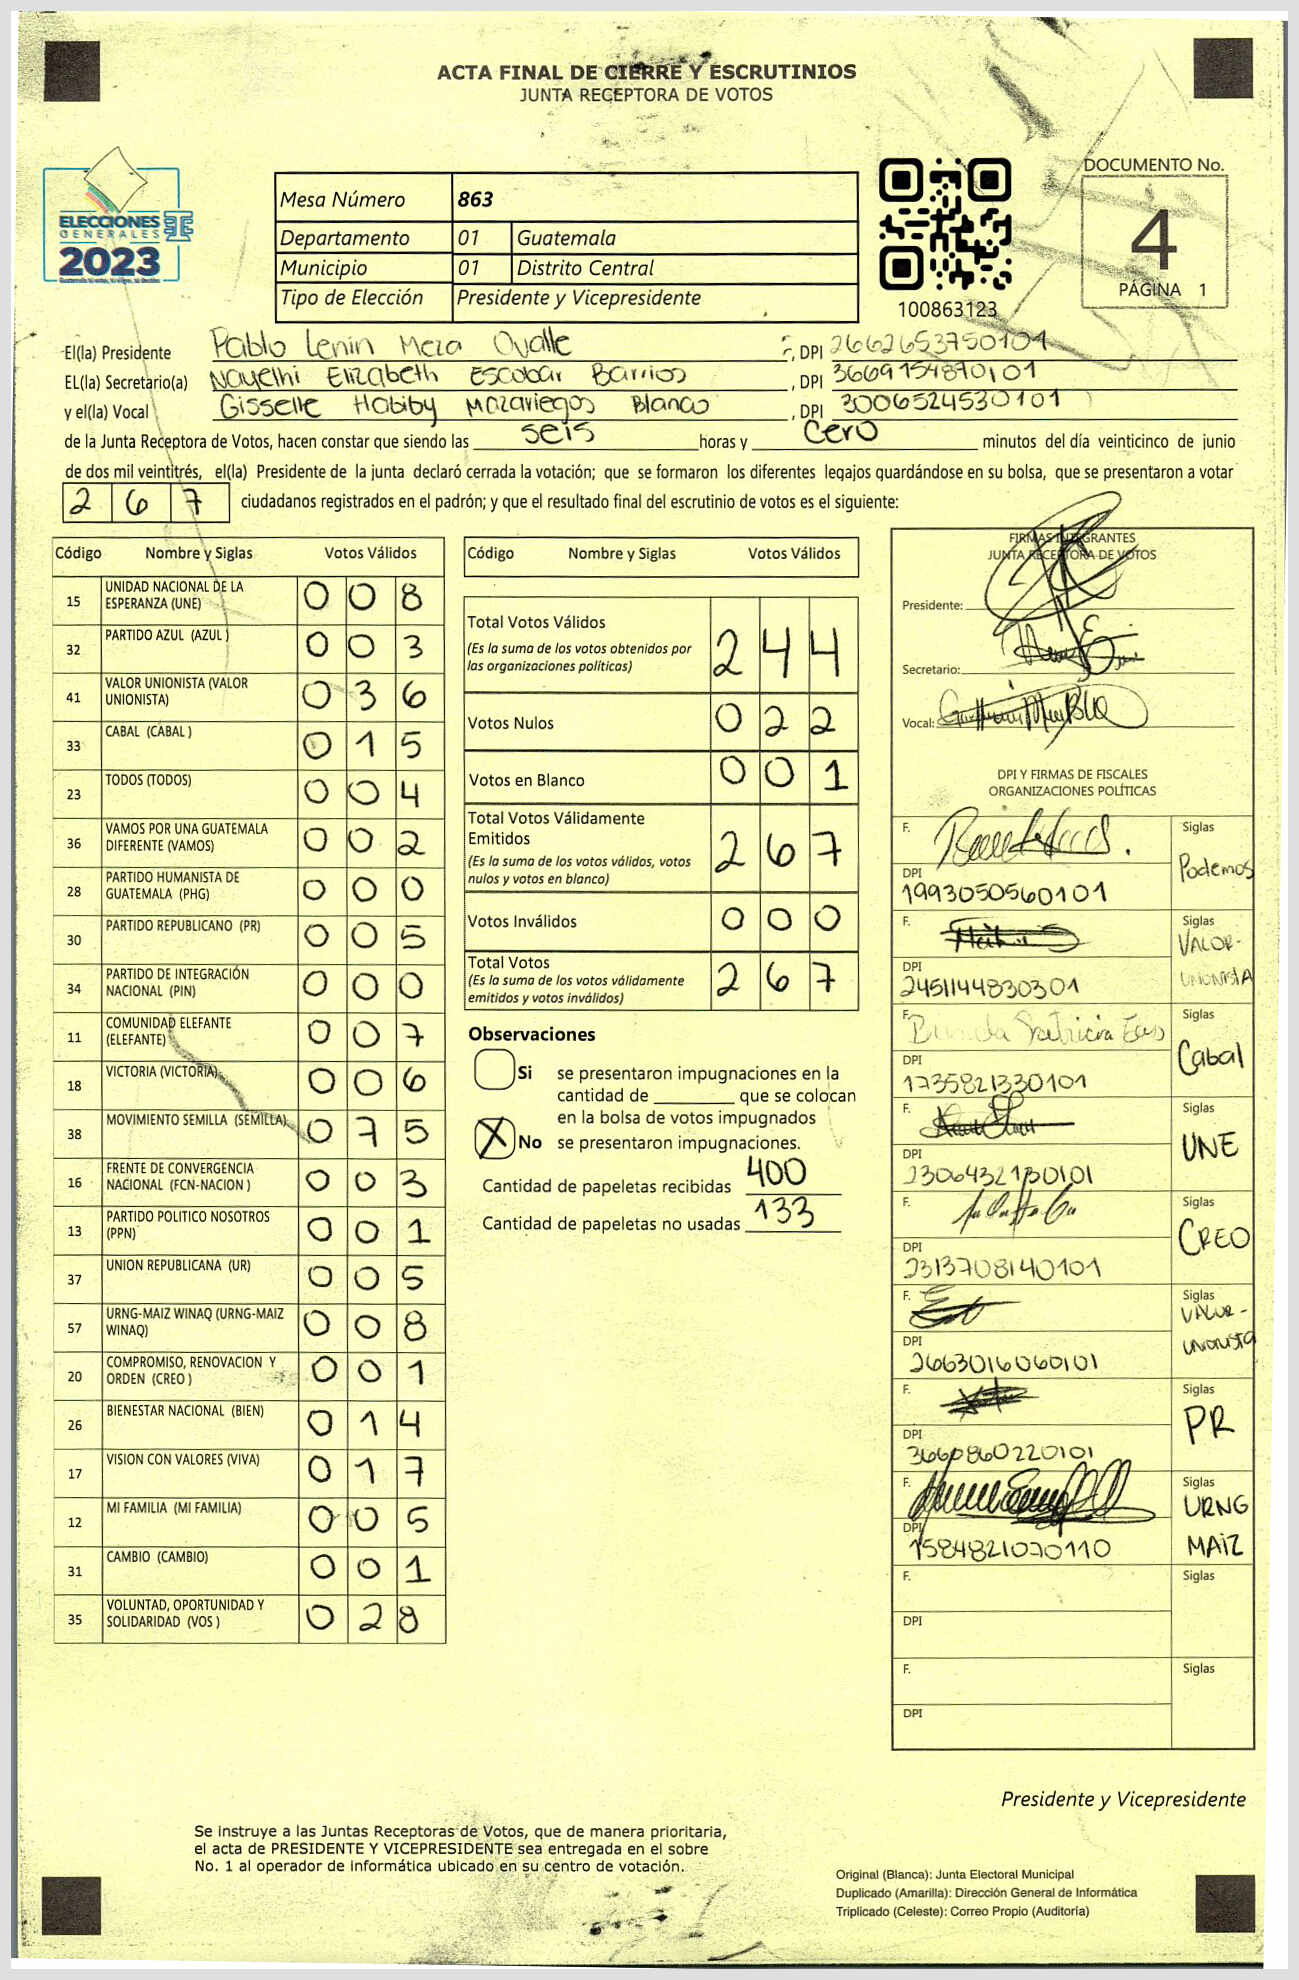 ACTA FINAL DE CIERRE Y ESCRUTINIOS
JUNTA RECEPTORA DE VOTOS
ELECCIONES
GENERALES
2023
Mesa Número 863
Departamento 01 Guatemala
Municipio 01 Distrito Central
Tipo de Elección Presidente y Vicepresidente
100863123
DOCUMENTO No.
4
PÁGINA 1
El(la) Presidente Pablo Lenin Meza Ovalle , DPI 2662653750101
EL(la) Secretario(a) Nayelhi Elizabeth Escobar Barrios , DPI 3669154870101
y el(la) Vocal Gisselle Habiby Mazariegos Blanco , DPI 3006524530101
de la Junta Receptora de Votos, hacen constar que siendo las seis horas y cero minutos del día veinticinco de junio
de dos mil veintitrés, el(la) Presidente de la junta declaró cerrada la votación; que se formaron los diferentes legajos guardándose en su bolsa, que se presentaron a votar
267 ciudadanos registrados en el padrón; y que el resultado final del escrutinio de votos es el siguiente:
Código Nombre y Siglas Votos Válidos
15 UNIDAD NACIONAL DE LA ESPERANZA (UNE) 008
32 PARTIDO AZUL (AZUL ) 003
41 VALOR UNIONISTA (VALOR UNIONISTA) 036
33 CABAL (CABAL ) 015
23 TODOS (TODOS) 004
36 VAMOS POR UNA GUATEMALA DIFERENTE (VAMOS) 002
28 PARTIDO HUMANISTA DE GUATEMALA (PHG) 000
30 PARTIDO REPUBLICANO (PR) 005
34 PARTIDO DE INTEGRACIÓN NACIONAL (PIN) 000
11 COMUNIDAD ELEFANTE (ELEFANTE) 007
18 VICTORIA (VICTORIA) 006
38 MOVIMIENTO SEMILLA (SEMILLA) 075
16 FRENTE DE CONVERGENCIA NACIONAL (FCN-NACION ) 003
13 PARTIDO POLITICO NOSOTROS (PPN) 001
37 UNION REPUBLICANA (UR) 005
57 URNG-MAIZ WINAQ (URNG-MAIZ WINAQ) 008
20 COMPROMISO, RENOVACION Y ORDEN (CREO ) 001
26 BIENESTAR NACIONAL (BIEN) 014
17 VISION CON VALORES (VIVA) 017
12 MI FAMILIA (MI FAMILIA) 005
31 CAMBIO (CAMBIO) 001
35 VOLUNTAD, OPORTUNIDAD Y SOLIDARIDAD (VOS ) 028
Código Nombre y Siglas Votos Válidos
Total Votos Válidos 244
(Es la suma de los votos obtenidos por
las organizaciones políticas)
Votos Nulos 022
Votos en Blanco 001
Total Votos Válidamente
Emitidos 267
(Es la suma de los votos válidos, votos
nulos y votos en blanco)
Votos Inválidos 000
Total Votos 267
(Es la suma de los votos válidamente
emitidos y votos inválidos)
Observaciones
Si se presentaron impugnaciones en la
cantidad de que se colocan
en la bolsa de votos impugnados
X No se presentaron impugnaciones.
Cantidad de papeletas recibidas 400
Cantidad de papeletas no usadas 133
FIRMAS INTEGRANTES
JUNTA RECEPTORA DE VOTOS
Presidente:
Secretario:
Vocal:
DPI Y FIRMAS DE FISCALES
ORGANIZACIONES POLÍTICAS
F. Siglas Podemos
DPI 1993050560101
F. Siglas VALOR-UNIONISTA
DPI 2451144830301
F. Siglas Cabal
DPI 1735821330101
F. Siglas UNE
DPI 2306432130101
F. Siglas CREO
DPI 2313708140101
F. Siglas VALOR-UNIONISTA
DPI 2663016060101
F. Siglas PR
DPI 3660860220101
F. Siglas URNG MAIZ
DPI 1584821070110
F. Siglas
DPI
F. Siglas
DPI
Presidente y Vicepresidente
Se instruye a las Juntas Receptoras de Votos, que de manera prioritaria,
el acta de PRESIDENTE Y VICEPRESIDENTE sea entregada en el sobre
No. 1 al operador de informática ubicado en su centro de votación.
Original (Blanca): Junta Electoral Municipal
Duplicado (Amarilla): Dirección General de Informática
Triplicado (Celeste): Correo Propio (Auditoría)